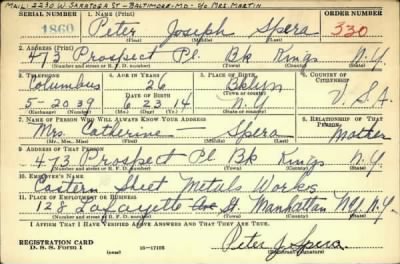 MAIL: - 2230 W SARATOGA ST - BALTIMORE - MD - c/o MRS MARTIN
SERIAL NUMBER 1. NAME (Print) ORDER NUMBER
1860 Peter Joseph Spera 330
(First) (Middle) (Last)
2. ADDRESS (Print)
473 Prospect Pl. Bk Kings N.Y.
(Number and street or R. F. D. number) (Town) (County) (State)
3. TELEPHONE 4. AGE IN YEARS 5. PLACE OF BIRTH 6. COUNTRY OF CITIZENSHIP
Columbus 26 Bklyn
DATE OF BIRTH
5-2039 6 23 14 N.Y. U.S.A.
(Exchange) (Number) (Mo.) (Day) (Yr.) (State or country)
7. NAME OF PERSON WHO WILL ALWAYS KNOW YOUR ADDRESS 8. RELATIONSHIP OF THAT PERSON
Mrs. Catherine — Spera Mother
(Mr., Mrs., Miss) (First) (Middle) (Last)
9. ADDRESS OF THAT PERSON
473 Prospect Pl Bk Kings N.Y.
(Number and street or R. F. D. number) (Town) (County) (State)
10. EMPLOYER'S NAME
Eastern Sheet Metals Works
11. PLACE OF EMPLOYMENT OR BUSINESS
128 Lafayette Ave St Manhattan NY. N.Y.
(Number and street or R. F. D. number) (Town) (County) (State)
I AFFIRM THAT I HAVE VERIFIED ABOVE ANSWERS AND THAT THEY ARE TRUE.
REGISTRATION CARD
D. S. S. FORM 1 16-17105 Peter J. Spera